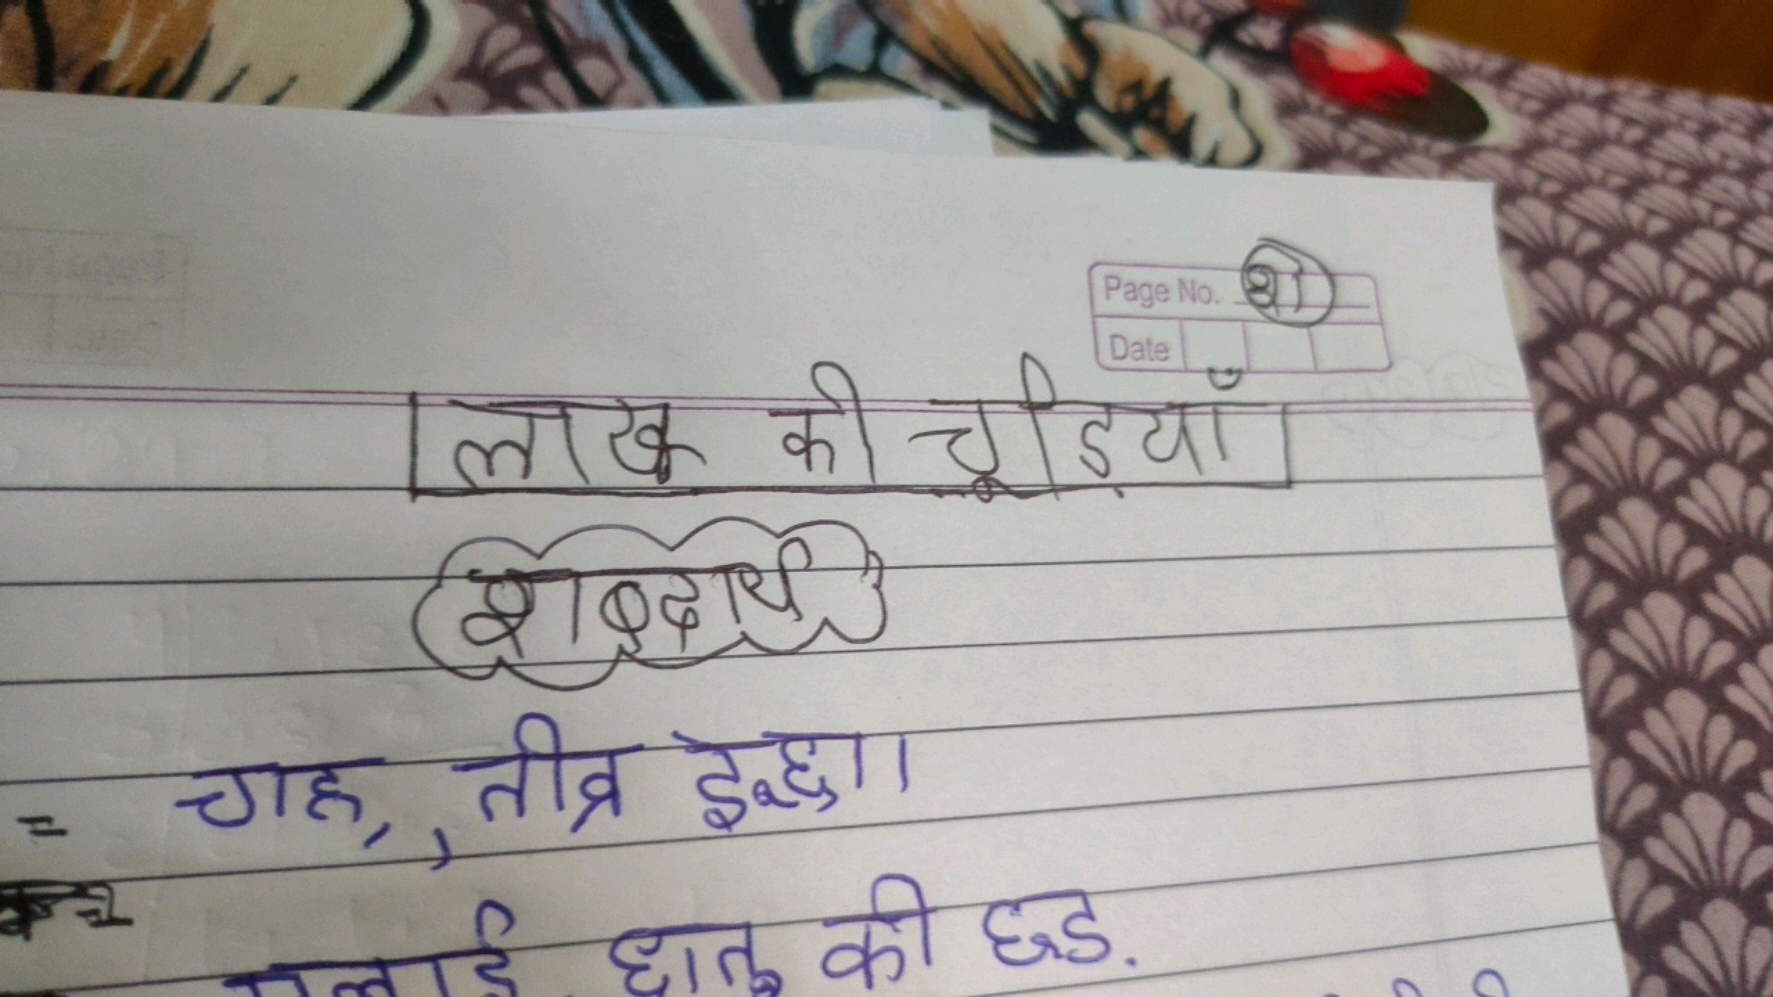 Page No. श
Date
लाख की चूड़ियाँ
शब्दार्थ
= चाह, , तीव्र इच्छा।
सलाई, धातु की छड़.